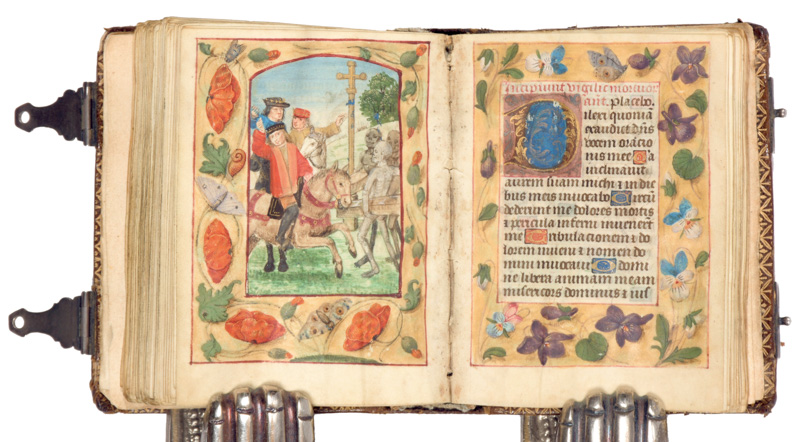 Incipiunt vigilie mortuor
ant. Placebo.
Dilexi quoniā
exaudiet dñs
vocem oracio
nis mee Q̄a
inclinavit
aurem suam michi ⁊ in die
bus meis invocabo Circū
dederunt me dolores mortis
⁊ pericula inferni invenerūt
me Tribulacionem ⁊ do
lorem inveni ⁊ nomen do
mini invocavi O domi
ne libera animam meam
misericors dominus ⁊ ius